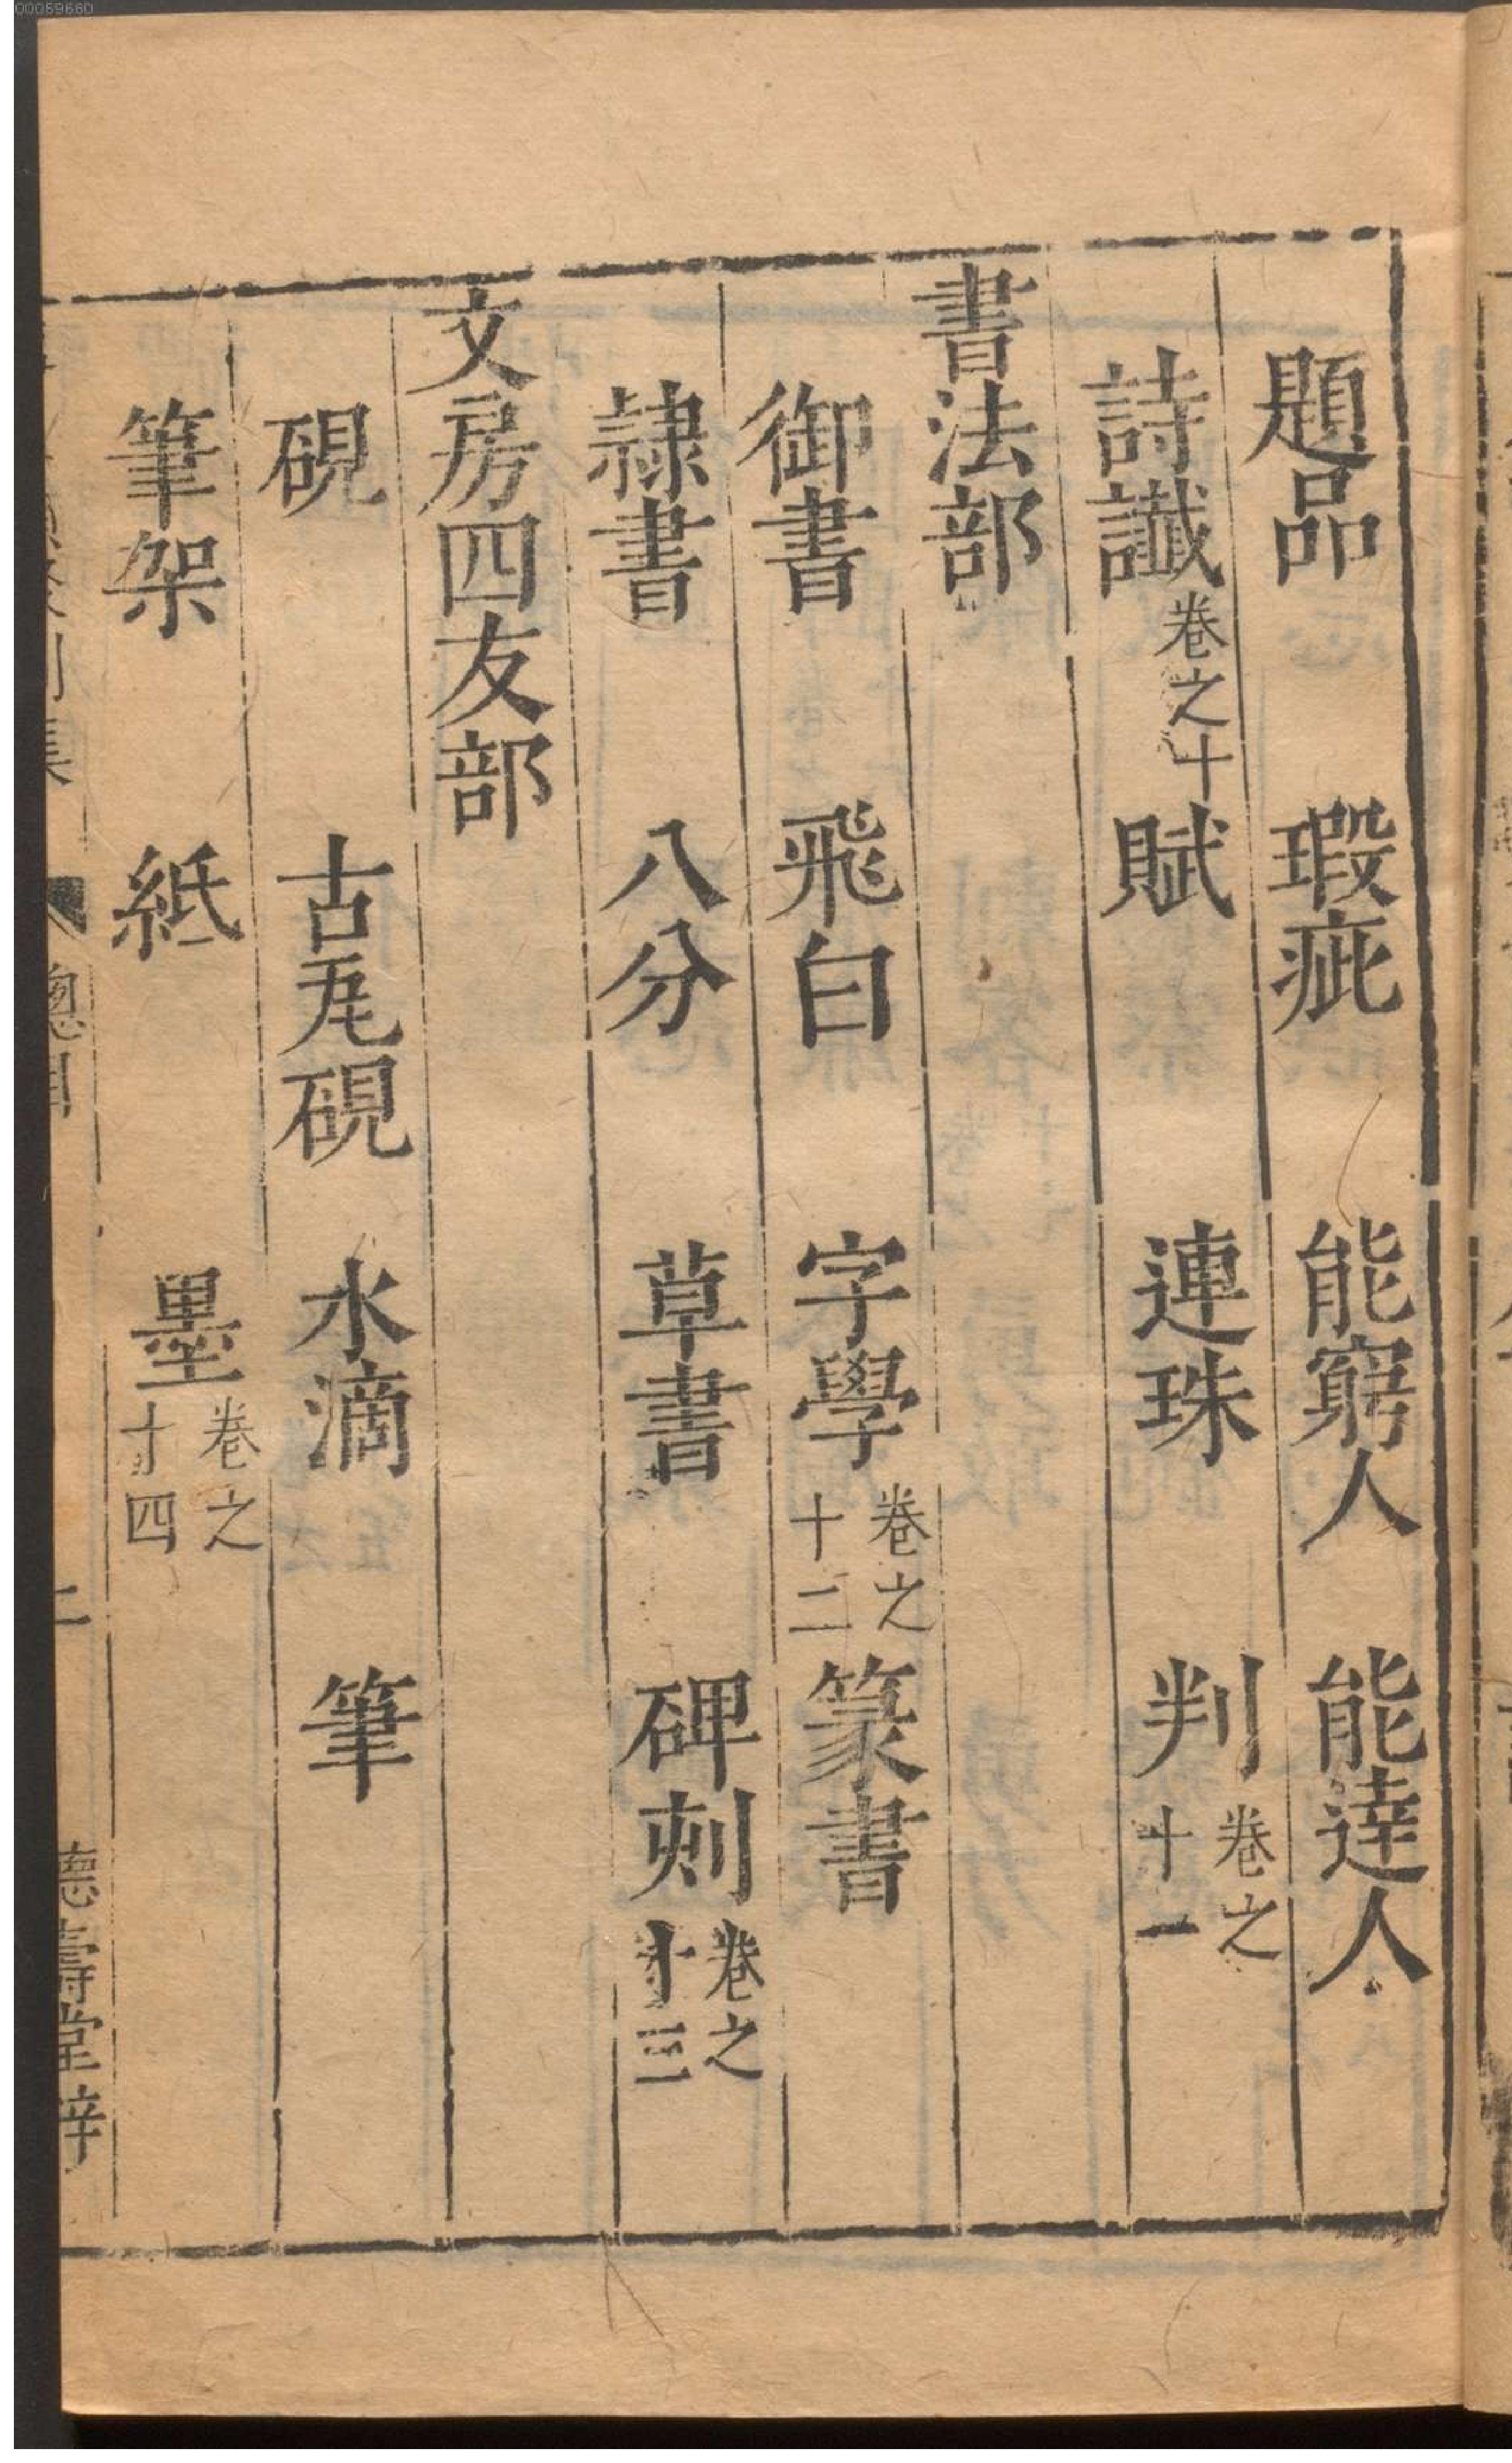 題品 瑕疵 能窮人 能逹人
詩讖卷之十 賦 連珠 判卷之十一
書法部
御書 飛白 字學卷之十二 篆書
隷書 八分 草書 碑刻卷之十三
文房四友部
硯 古瓦硯 水滴 筆
筆架 紙 墨卷之十四
總目 二 德壽堂梓
00059660